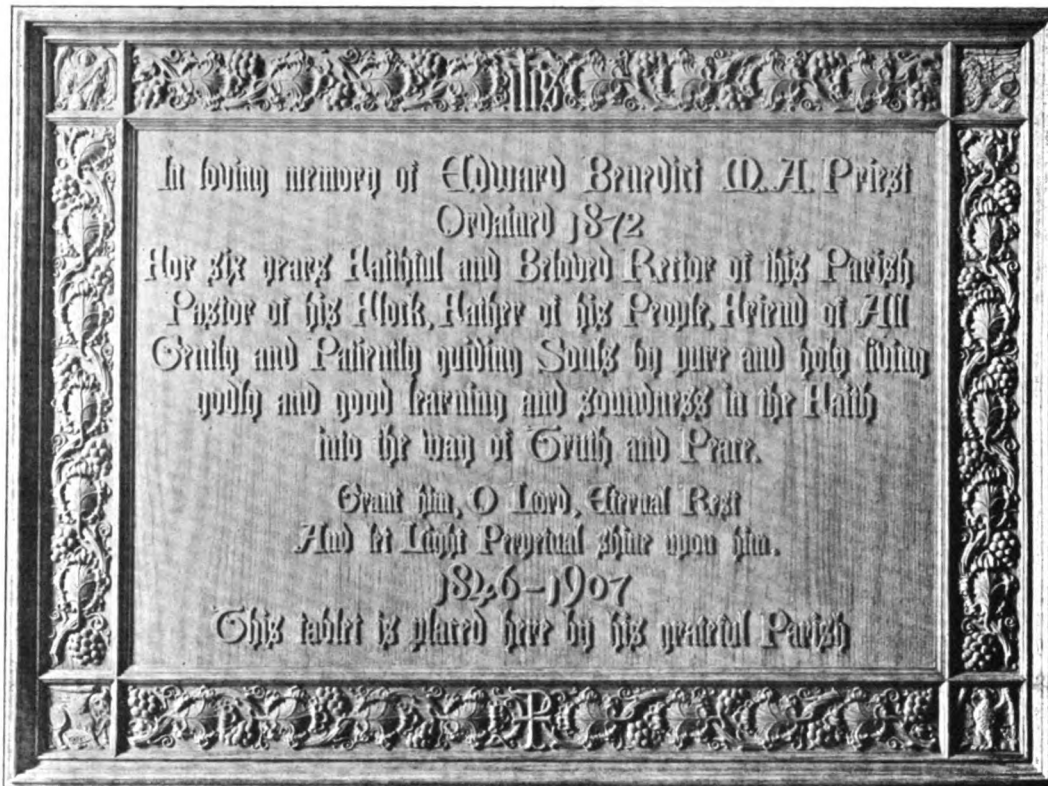 IHS
In loving memory of Edward Benedict M.A. Priest
Ordained 1872
For six years Faithful and Beloved Rector of this Parish
Pastor of his Flock, Father of his People, Friend of All
Gently and Patiently guiding Souls by pure and holy living
godly and good learning and soundness in the Faith
into the way of Truth and Peace.
Grant him, O Lord, Eternal Rest
And let Light Perpetual shine upon him.
1846-1907
This tablet is placed here by his grateful Parish
☧